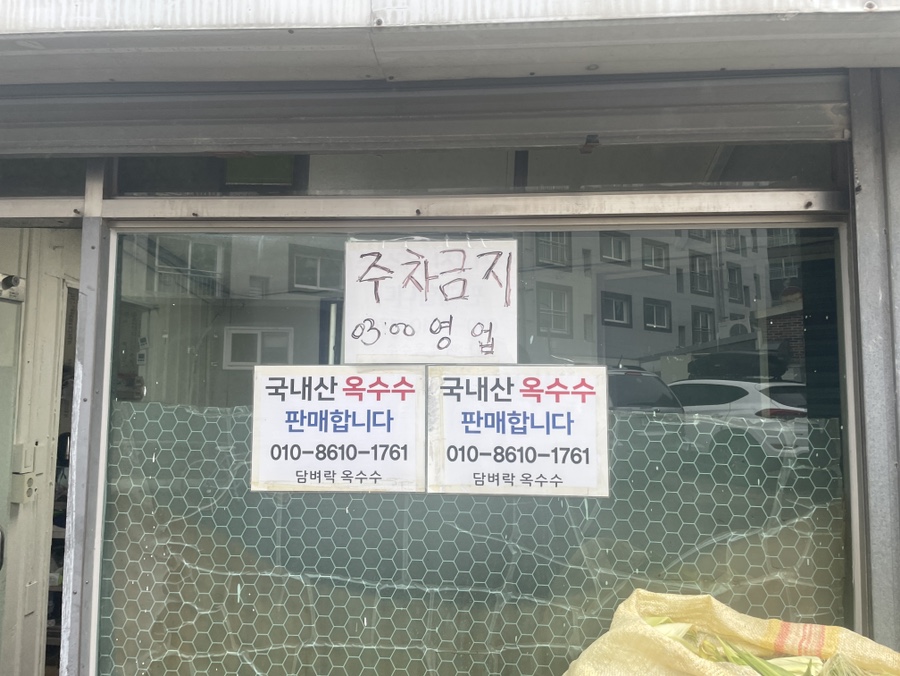 주차금지
03:00 영업
국내산 옥수수
판매합니다
010-8610-1761
담벼락 옥수수
국내산 옥수수
판매합니다
010-8610-1761
담벼락 옥수수